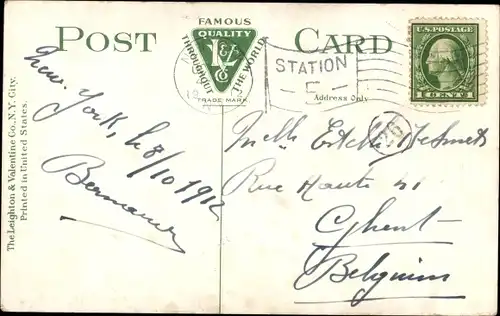 POST CARD
FAMOUS
QUALITY
THROUGHOUT THE WORLD
L&V Co
TRADE MARK
STATION
E
Address Only
U.S. POSTAGE
1 CENT 1
26
The Leighton & Valentine Co., N.Y. City.
Printed in United States.
New-York, le 8/10 1912
Melle
Rue Haute 41
Ghent
Belgium